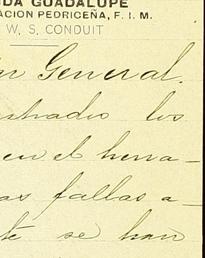 DA GUADALUPE
ACION PEDRICEÑA, F. I. M.
W. S. CONDUIT
n General.
strados los
en el herra-
as fallas a-
te se han